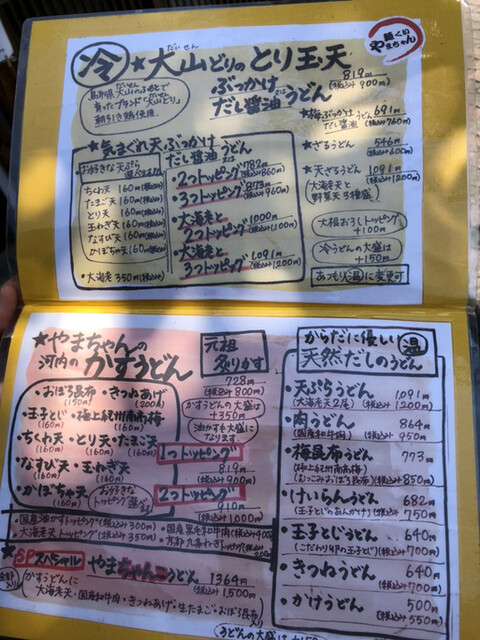 麺くい
やまちゃん
冷 ★大山どりのとり玉天
だいせん
ぶっかけ
又は
だし醤油うどん
819円
(税込み900円)
鳥取県大山のふもとで
育ったブランド「大山どり」
朝引き鶏使用
★気まぐれ天ぶっかけ
又は
だし醤油うどん
お好きな天ぷら
選べる
ちくわ天 160円(税込み)
たまご天 160円(税込み)
とり天 160円(税込み)
玉ねぎ天 160円(税込み)
なすび天 160円(税込み)
かぼちゃ天 160円(税込み)
・大海老 350円(税込み)
・2つトッピング 782円
(税込み860円)
・3つトッピング 873円
(税込み960円)
・大海老と
2つトッピング 1,000円
(税込み1,100円)
・大海老と
3つトッピング 1,091円
(税込み1,200円)
★梅ぶっかけ
又は
だし醤油うどん
691円
(税込み760円)
★ざるうどん 546円
(税込み600円)
★天ざるうどん 1,091円
(税込み1,200円)
(大海老天と
野菜天3種盛)
大根おろしトッピング
+100円
冷うどんの大盛は
+150円
あつもり(温)に変更可
★やまちゃんの
河内のかすうどん
元祖
炙りかす
728円
(税込み800円)
かすうどんの大盛は
+350円
油かすも大盛に
なります。
・おぼろ昆布
(150円)
・きつねあげ
(200円)
・玉子とじ
(160円)
・極上紀州南高梅
(160円)
・ちくわ天
(160円)
・とり天
(160円)
・たまご天
(160円)
・なすび天
(160円)
・玉ねぎ天
(160円)
・かぼちゃ天
(160円)
お好きな
トッピング選べる
1つトッピング
819円
(税込み900円)
2つトッピング
910円
(税込み1,000円)
・国産油かすトッピング(税込み300円)
・大海老天トッピング(税込み350円)
・国産黒毛和牛肉(税込み400円)
・京都九条ねぎトッピング(税込み
★SPスペシャル やまちゃんこうどん 1364円
(税込み1,500円)
全部
入り
かすうどんに
大海老天・国産和牛肉・きつねあげ・生たまご・おぼろ昆布
からだに優しい 温
天然だしのうどん
・天ぷらうどん 1,091円
(大海老天2尾) (税込み1,200円)
・肉うどん 864円
(国産和牛肉) (税込み950円)
・梅昆布うどん 773円
(極上紀州南高梅)
(むっこみおぼろ昆布) (税込み850円)
・けいらんうどん 682円
(玉子とじのあんかけ) (税込み750円)
・玉子とじうどん 640円
(こだわり卵の玉子とじ) (税込み700円)
・きつねうどん 640円
(税込み700円)
・かけうどん 500円
(税込み550円)
うどんの大盛は